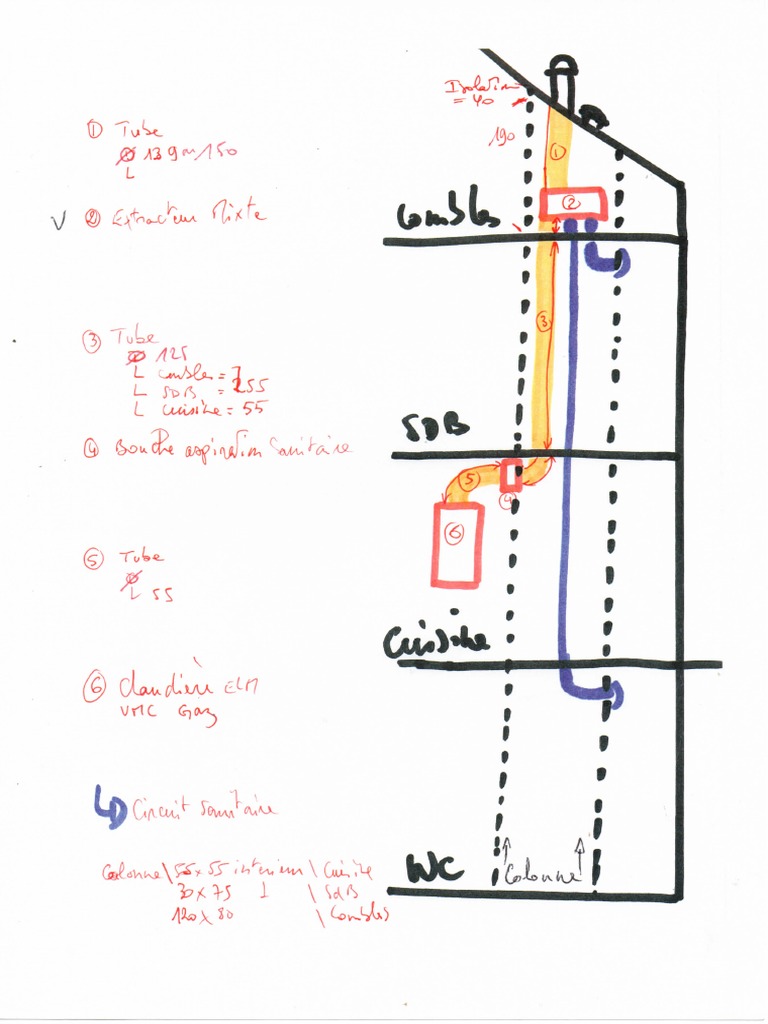 Isolation
= 40
190
① Tube
Ø 139 m/150
L
V ② Extracteur Mixte
Combles
③ Tube
Ø 125
L combles =
L SDB = 255
L cuisine = 55
SDB
④ Bouche aspiration Sanitaire
⑤ Tube
Ø
L 55
Cuisine
⑥ Chaudière ELM
VMC Gaz
Circuit Sanitaire
Colonne \ 55x55 interieur \ Cuisine
30x75 \ SdB
120x80 \ Combles
WC
Colonne
①
②
③
④
⑤
⑥